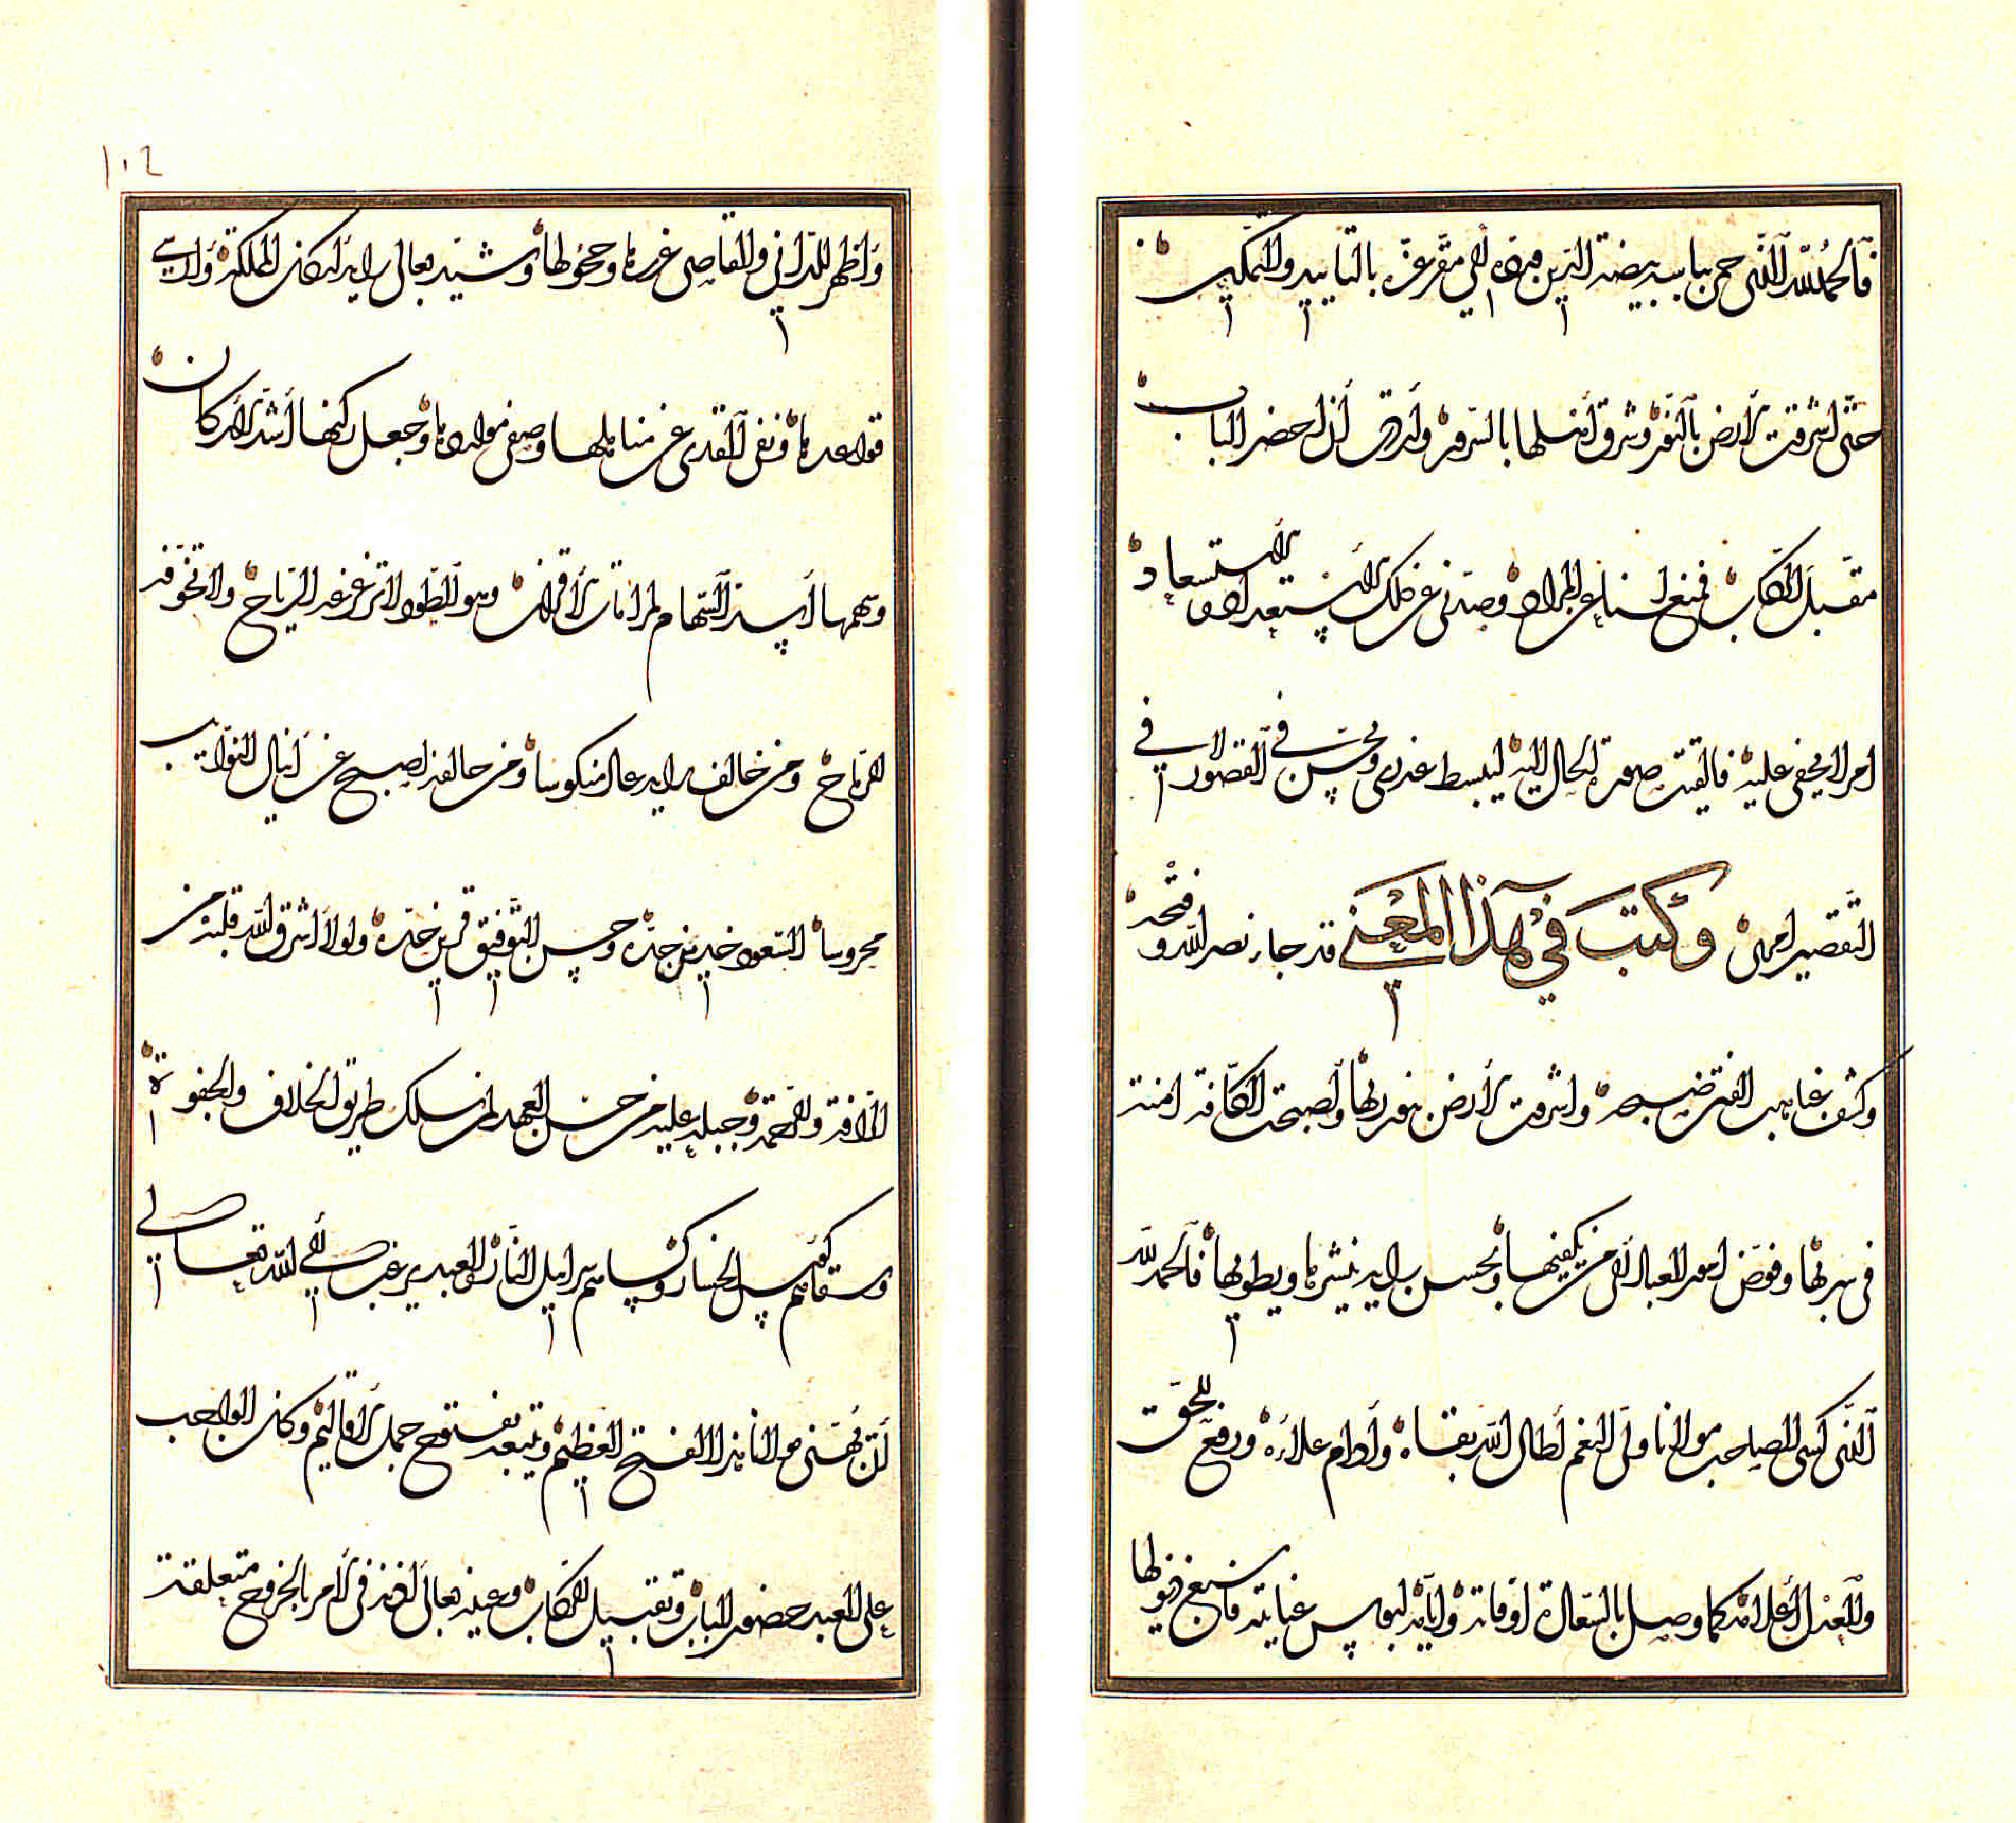 فالحمد لله الذي حمى بيابسه بيضة الدين وردّه إلى مقرّ عزّه بالتأييد والتمكين
حتى أشرقت الأرض بالنور وشرق أهلها بالسرور وأردت أن أحضر الباب
مقبل الركاب فمنع لسناع المراد وصدّني عن ذلك الاستعداد الاستسعاد
امر لا يخفى عليه فألقيت صورة الحال إليه ليبسط عذري ويحسن في القصور لا في
التقصير امري وكتب في هذا المعنى قد جاء نصر الله و فتحه
وكشف غياهب الفتن صبحه واشرقت الأرض بنور ربها وأصبحت الكافة امنة
في سربها وفوّض امور العباد إلى من يكفيها ويحسن رايه ينشرها ويطويها فالحمد لله
الذي كسى الصاحب مولانا ولي النعم أطال الله بقاءه وأدام علاءه ورفع للحق
والعدل أعلامه كما وصل بالسعادة أوقاته وأيّامه لبوس عنايته فأسبغ ذيولها
١٠٢
وأظهر للداني والقاصي غررها وحجولها وشيّد بعالي رايه اركان المملكة وأرسى
قواعدها ونفى القذى عن مناهلها وصفى مواردها وجعل ركنها أشد الاركان
وسهمها أسد السهام لمراماة الأقران وهو الطود لا تزعزعه الرياح ولا تخوّفه
الرماح ومن خالف رايه عاد منكوسا ومن حالفه اصبح عن انياب النوايب
محروسا السعود خدين جدّه وحسن التوفيق قرين حدّه ولولا ما أشرق الله قلبه من
الرافة والرحمة وجبله عليه من حسن العهد لمن سلك طريق الخلاف والجفوة
وسقاهم كؤس الخسار وكساهم سرابيل النار والعبد يرغب إلى الله تعالى
أن يهني مولانا هذا الفتح العظيم ويتبعه بفتوح جمل الأقاليم وكان الواجب
على العبد حضور الباب وتقبيل الركاب وعينه بعالي اذنه في الأمر بالخروج متعلقة